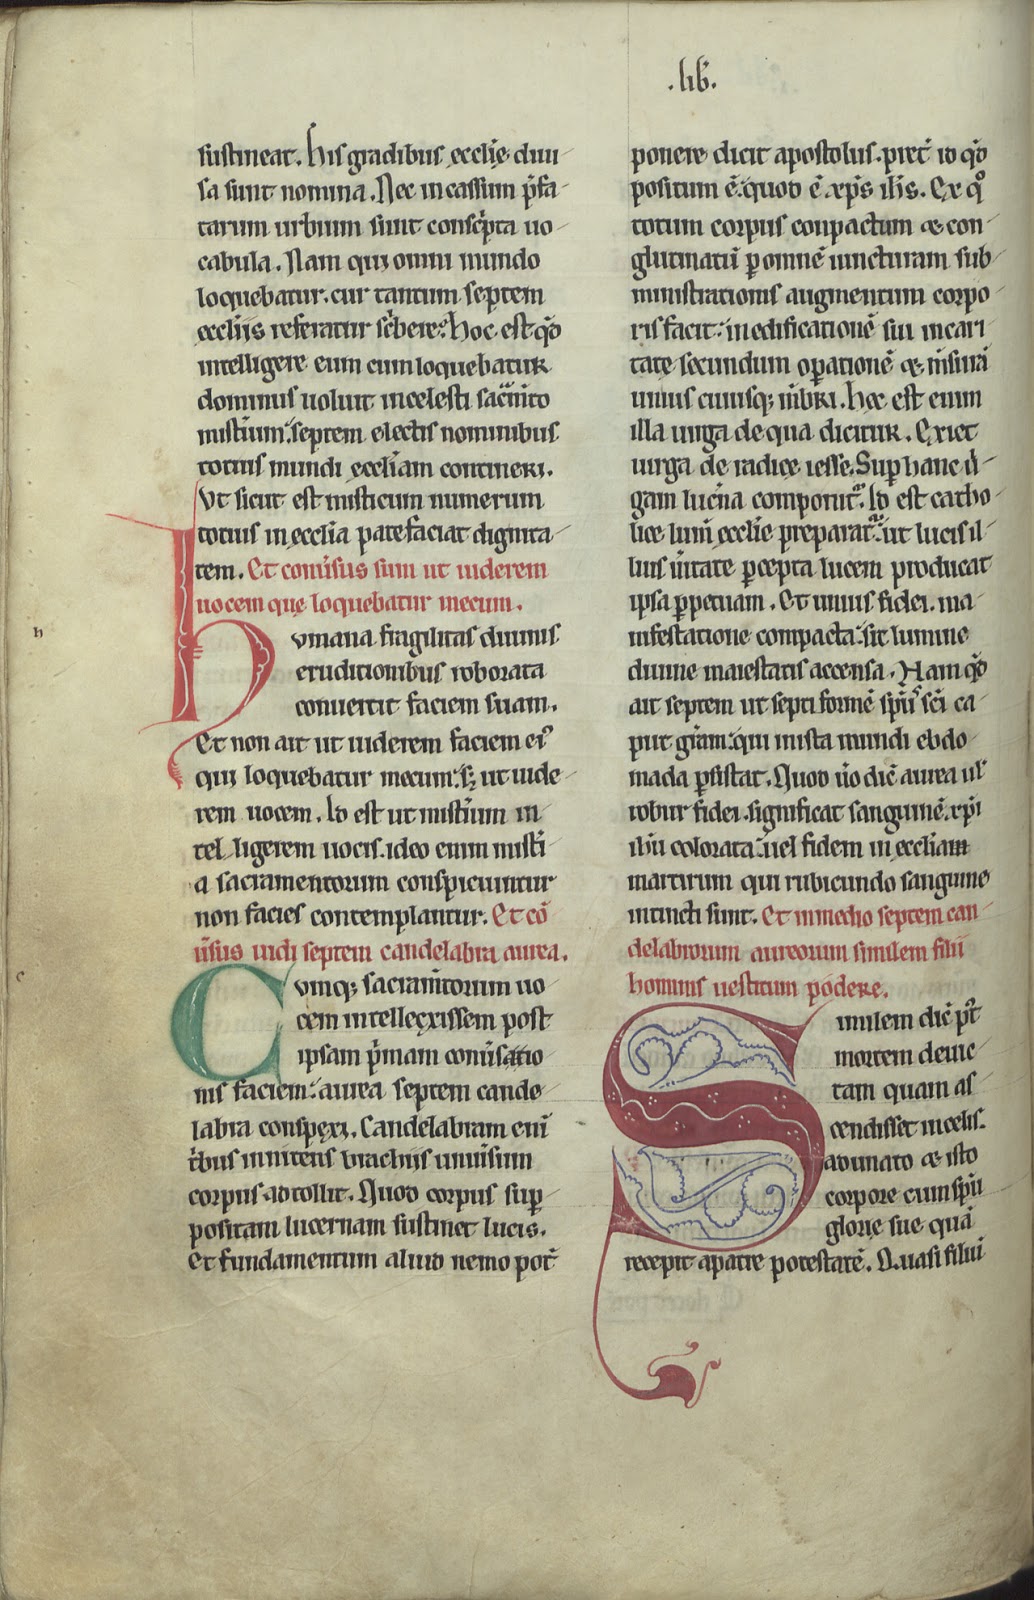 .lib̄.
sustineat. his gradibus ęcclīe diui
sa sunt nomina. Nec incassum p̄fa
tarum urbium sunt consc̄pta uo
cabula. Nam qui omni mundo
loquebatur. cur tantum septem
ęccl̄iis referatur sc̄bere? hoc est qd̄
intelligere eum cum loquebatur
dominus uoluit incelesti sacm̄to
misteriūm. septem electis nominibus
totius mundi ęccl̄iam contineri.
Vt sicut est misticum numerum
totius in ęccl̄ia patefaciat dignita
tem. Et conūsus sum ut uiderem
uocem quę loquebatur mecum.
h
Vmana fragilitas diuinis
eruditionibus roborata
conuertit faciem suam.
Et non ait ut uiderem faciem ei᾽
qui loquebatur mecum. sꝫ ut uide
rem uocem. Id est ut mistīum in
telligerem uocis. ideo enim mistī
a sacramentorum conspiciuntur
non facies contemplantur. Et cō
ūsus uidi septem candelabra aurea.
c
Cvmqꝫ sacram̄torum uo
cem intellęxissem post
ipsam p̄mam conūsatio
nis faciem. aurea septem cande
labra conspexi. Candelabram enī
t̄bus innitens brachiis uniūsum
corpus adtollit. Quod corpus sup̄
positam lucernam sustinet lucis.
Et fundamentum aliud nemo pot̄
ponere dicit apostolus. pret̄ id qd̄
positum ē. quod ē xp̄s ih̄s. Ex qͦ
totum corpus conpactum & con
glutinatū ꝑ omnē iuncturam sub
ministrationis augmentum corpo
ris facit. inedificationē sui incari
tate secundum oꝑationē & m̄surā
unius cuiusqꝫ mb̄ri. hęc est enim
illa uirga de qua dicitur. Exiet
uirga de radice iesse. Suꝑ hanc ū
gam luc̄na componitᷣ. Id est catho
lice lum̄ ęcclīe preparatᷣ. ut lucis il
lius ūitate ꝑcepta lucem producat
ipsa ꝑpetuam. Et unius fidei. ma
nifestatione compacta. sit lumine
diuine maiestatis accensa. Nam qd̄
ait septem ut septi formē sp̄ūs sc̄i ca
put gr̄am. qui inista mundi ebdo
mada ꝑsistat. Quod ūo dic̄ aurea ul̄
robur fidei. significat sanguinē xp̄i
ih̄u colorata. uel fidem in ęccl̄iam
martirum qui rubicundo sanguine
intincti sunt. Et inmedio septem can
delabrorum aureorum similem filii
hominis uestitum podere.
Similem dic̄ pt̓
mortem deuic
tam quam as
cendisset incelis.
adunato & isto
corpore cum sp̄ū
glorię sue quā
recepit apatre potestatē. Quasi filiū